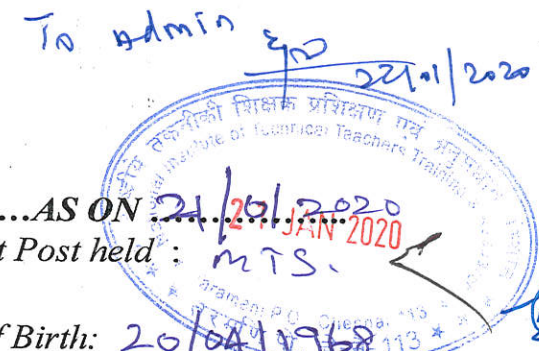 To Admin
22/01/2020
तकनीकी शिक्षक प्रशिक्षण एवं
Institute of Technical Teachers Training
...AS ON 21/01/2020
21 JAN 2020
t Post held : MTS.
aramani P.O. Chennai - 113
f Birth: 20/04/1968
113